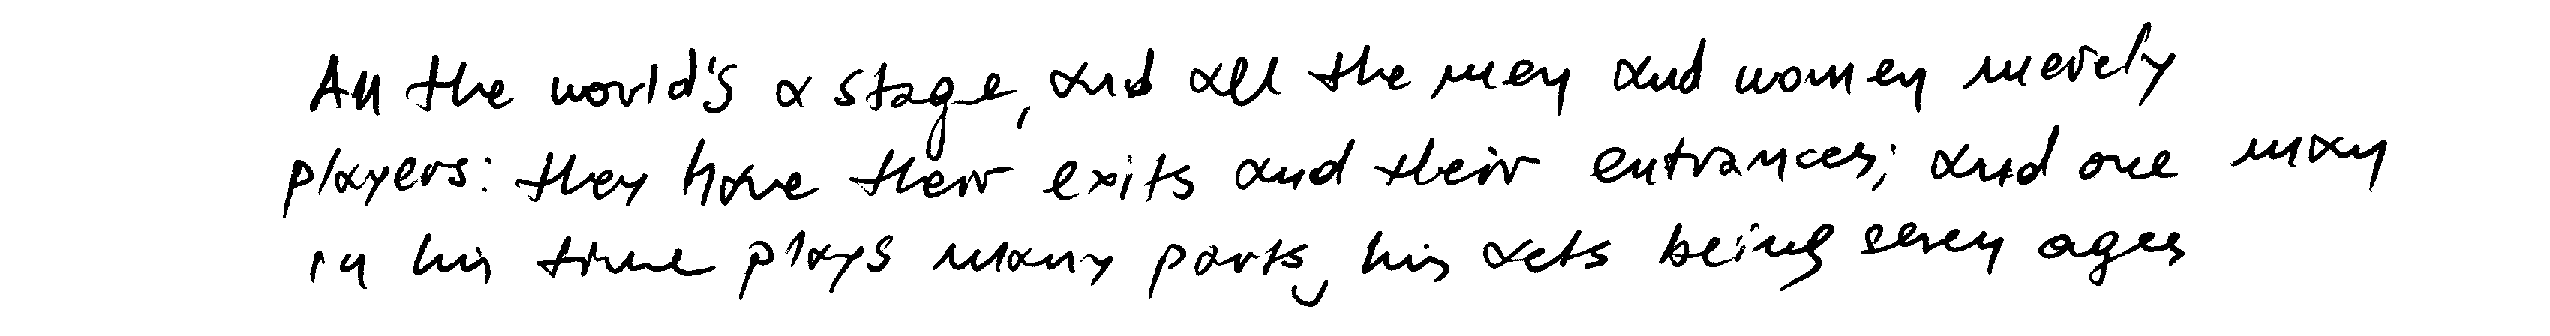 All the world's a stage, and all the men and women merely
players: they have their exits and their entrances; and one man
in his time plays many parts, his acts being seven ages